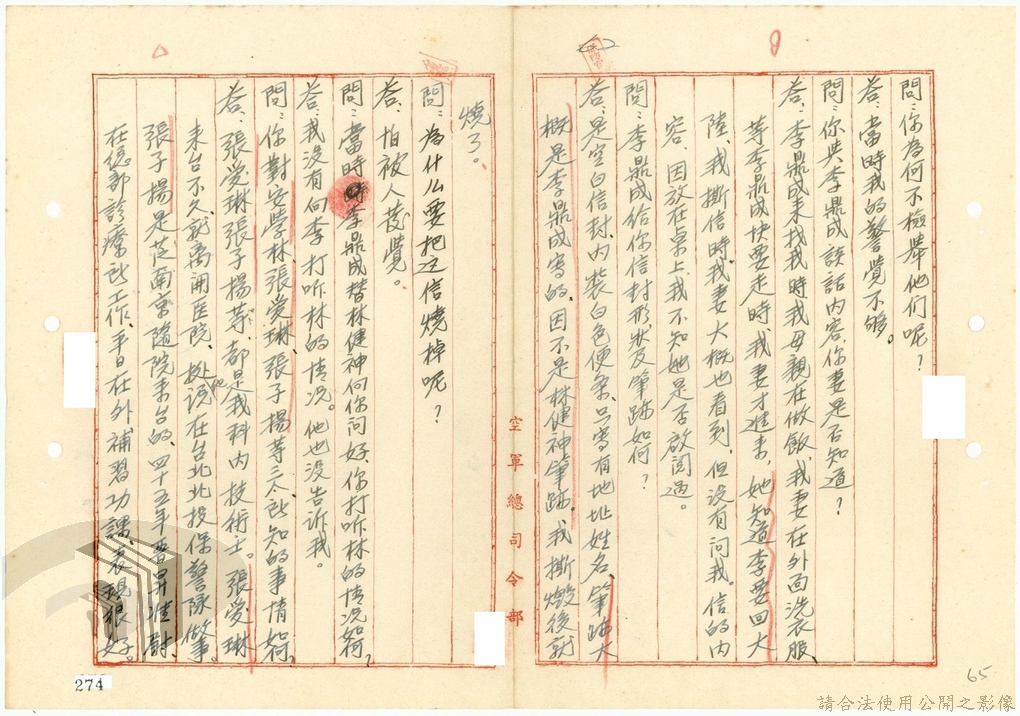 問:你為何不檢舉他们呢?
答:當時我的警覺不够。
問:你與李鼎成談話內容,你妻是否知道?
答:李鼎成来找我時我母親在做飯,我妻在外面洗衣服,
等李鼎成快要走時,我妻才進来,她知道李要回大
陸,我撕信時我妻大概也看到,但没有問我。信的内
容,因放在桌上,我不知她是否啟閲過。
問:李鼎成給你信封形狀及筆跡如何?
答:是空白信封,内裝白色便条,只寫有地址姓名,筆跡大
概是李鼎成寫的,因不是林健神筆跡。我撕燬後就
空軍總司令部
燒了。
問:為什么要把这信燒掉呢?
答:怕被人發覺。
問:當時李鼎成替林健神向你問好,你打听林的情况如何?
答:我没有向李打听林的情况。他也没告诉我。
問:你對安學林、張愛琳、張子揚等三人所知的事情如何?
答:張愛琳張子揚等,都是我科内技術士。張愛琳
来台不久,就离開医院,她说在台北北投保警隊做事。
張子揚是從南京隨院来台的,四十五年晋昇准尉,
在總部診療所工作,平日在外補習功課,表現很好。
274
65
請合法使用公開之影像